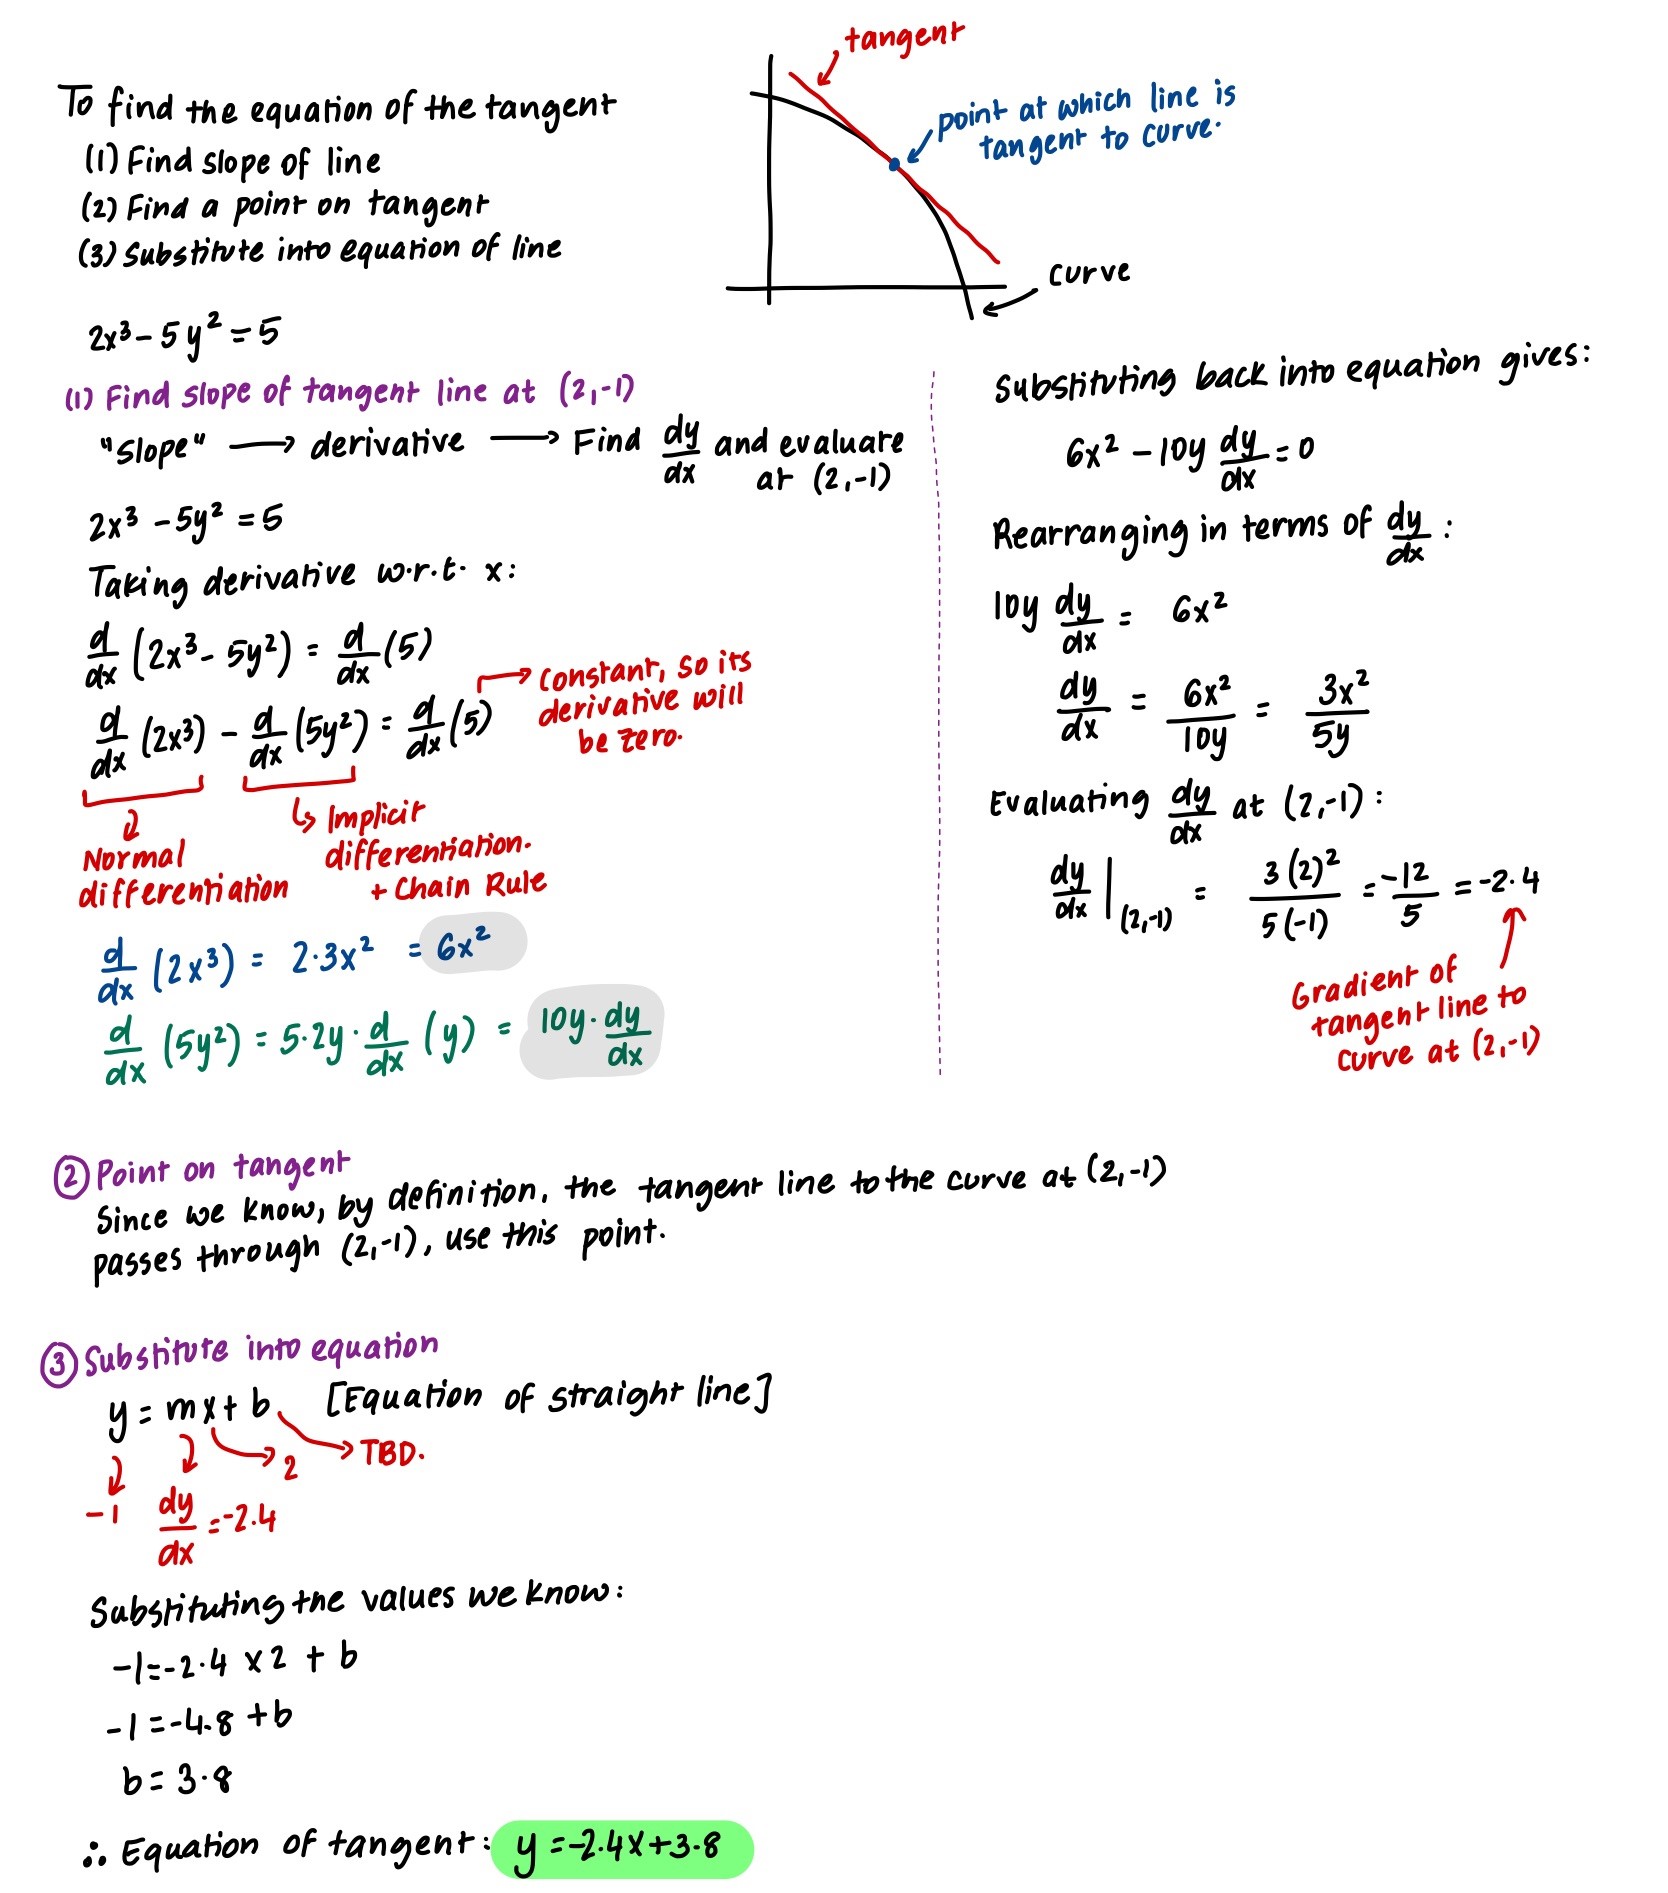 To find the equation of the tangent
(1) Find slope of line
(2) Find a point on tangent
(3) Substitute into equation of line
tangent
point at which line is
tangent to curve.
curve
2x³ - 5y² = 5
(1) Find slope of tangent line at (2,-1)
"slope" → derivative → Find dy/dx and evaluate
at (2,-1)
2x³ - 5y² = 5
Taking derivative w.r.t. x:
d/dx (2x³ - 5y²) = d/dx (5)
d/dx (2x³) - d/dx (5y²) = d/dx (5)
Constant, so its
derivative will
be zero.
Normal
differentiation
Implicit
differentiation.
+ Chain Rule
d/dx (2x³) = 2·3x² = 6x²
d/dx (5y²) = 5·2y · d/dx (y) = 10y · dy/dx
Substituting back into equation gives:
6x² - 10y dy/dx = 0
Rearranging in terms of dy/dx :
10y dy/dx = 6x²
dy/dx = 6x²/10y = 3x²/5y
Evaluating dy/dx at (2,-1) :
dy/dx |(2,-1) = 3(2)²/5(-1) = -12/5 = -2.4
Gradient of
tangent line to
curve at (2,-1)
② Point on tangent
Since we know, by definition, the tangent line to the curve at (2,-1)
passes through (2,-1), use this point.
③ Substitute into equation
y = mx + b [Equation of straight line]
2 TBD.
-1 dy/dx = -2.4
Substituting the values we know:
-1 = -2.4 × 2 + b
-1 = -4.8 + b
b = 3.8
∴ Equation of tangent: y = -2.4x + 3.8